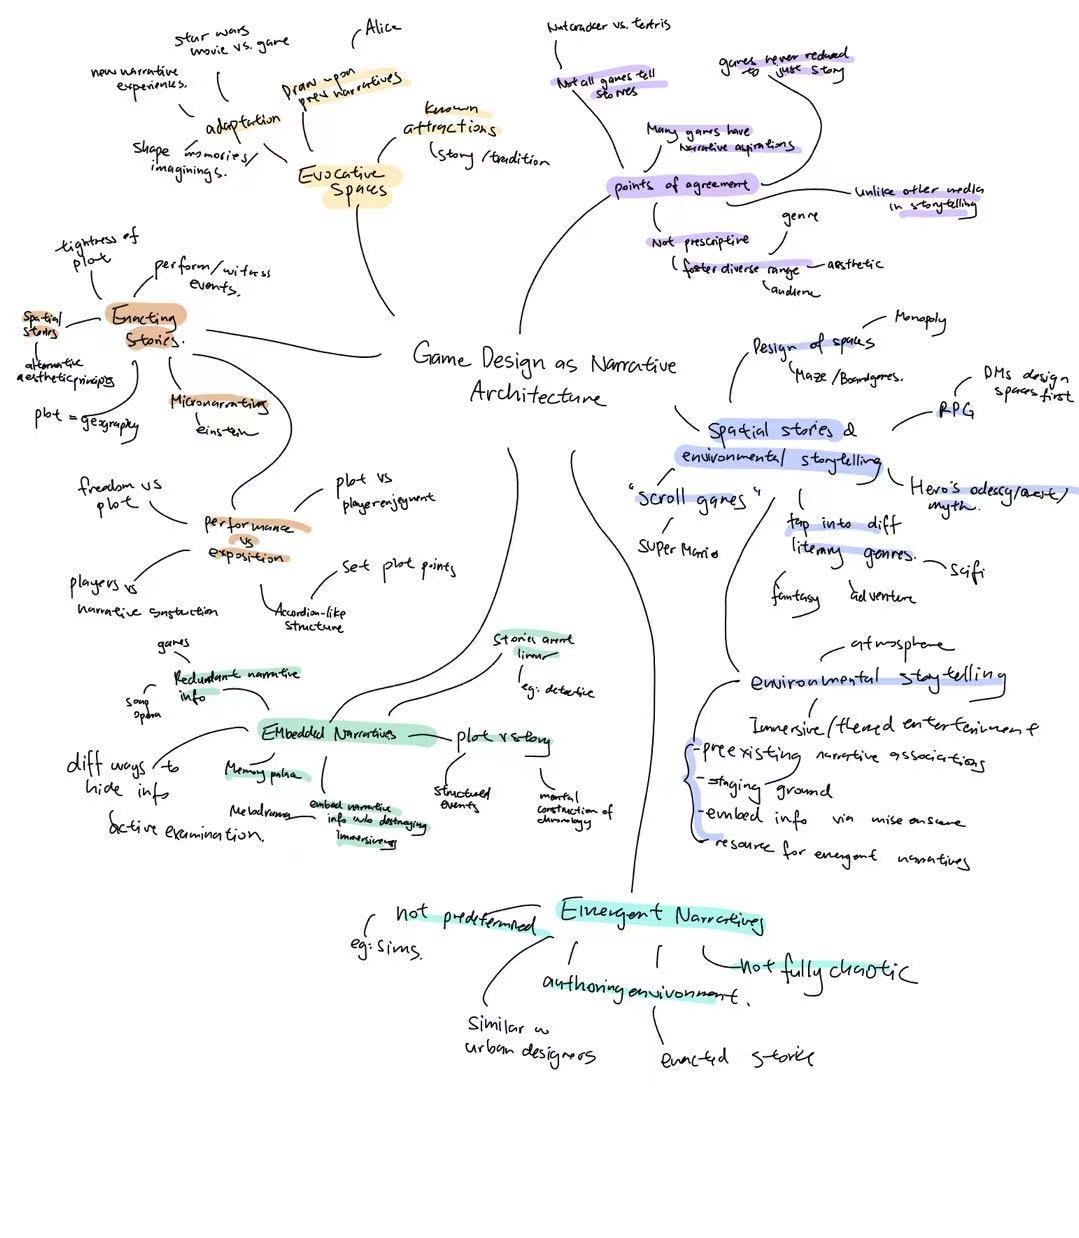 Game Design as Narrative
Architecture
Evocative
Spaces
Draw upon
prev narratives
Alice
Known
attractions
story/tradition
adaptation
star wars
movie vs. game
new narrative
experiences.
shape memories/
imaginings.
points of agreement
Not all games tell
stories
Nutcracker vs. tertris
Many games have
Narrative aspirations
games never reduced
to just story
unlike other media
in storytelling
Not prescriptive
foster diverse range
genre
aesthetic
audience
Spatial stories &
environmental storytelling
Design of spaces
Monopoly
Maze/Boardgames.
RPG
DMs design
spaces first
Hero's odessy/quest/
myth.
tap into diff
literary genres.
scifi
fantasy
adventure
"scroll games"
super Mario
environmental storytelling
atmosphere
Immersive/themed entertainment
-preexisting narrative associations
-staging ground
-embed info via mise enscene
- resource for emergent narratives
Emergent Narratives
not predetermined
eg: sims.
similar w
urban designers
authoring environment.
enacted stories
not fully chaotic
Embedded Narratives
Stories arent
linear
eg: detective
plot vs story
structured
events
mental
construction of
chronology
embed narrative
info w/o destroying
immersiveness
Melodrama
Memory palace
diff ways to
hide info
& active examination.
Redundant narrative
info
games
soap
opera
Enacting
Stories.
tightness of
plot
perform/witness
events.
Spatial
stories
alternative
aesthetic principles
plot = geography
Micronarratives
einstein
performance
vs
exposition
freedom vs
plot
plot vs
player enjoyment
players vs
narrative construction
Accordion-like
structure
set plot points